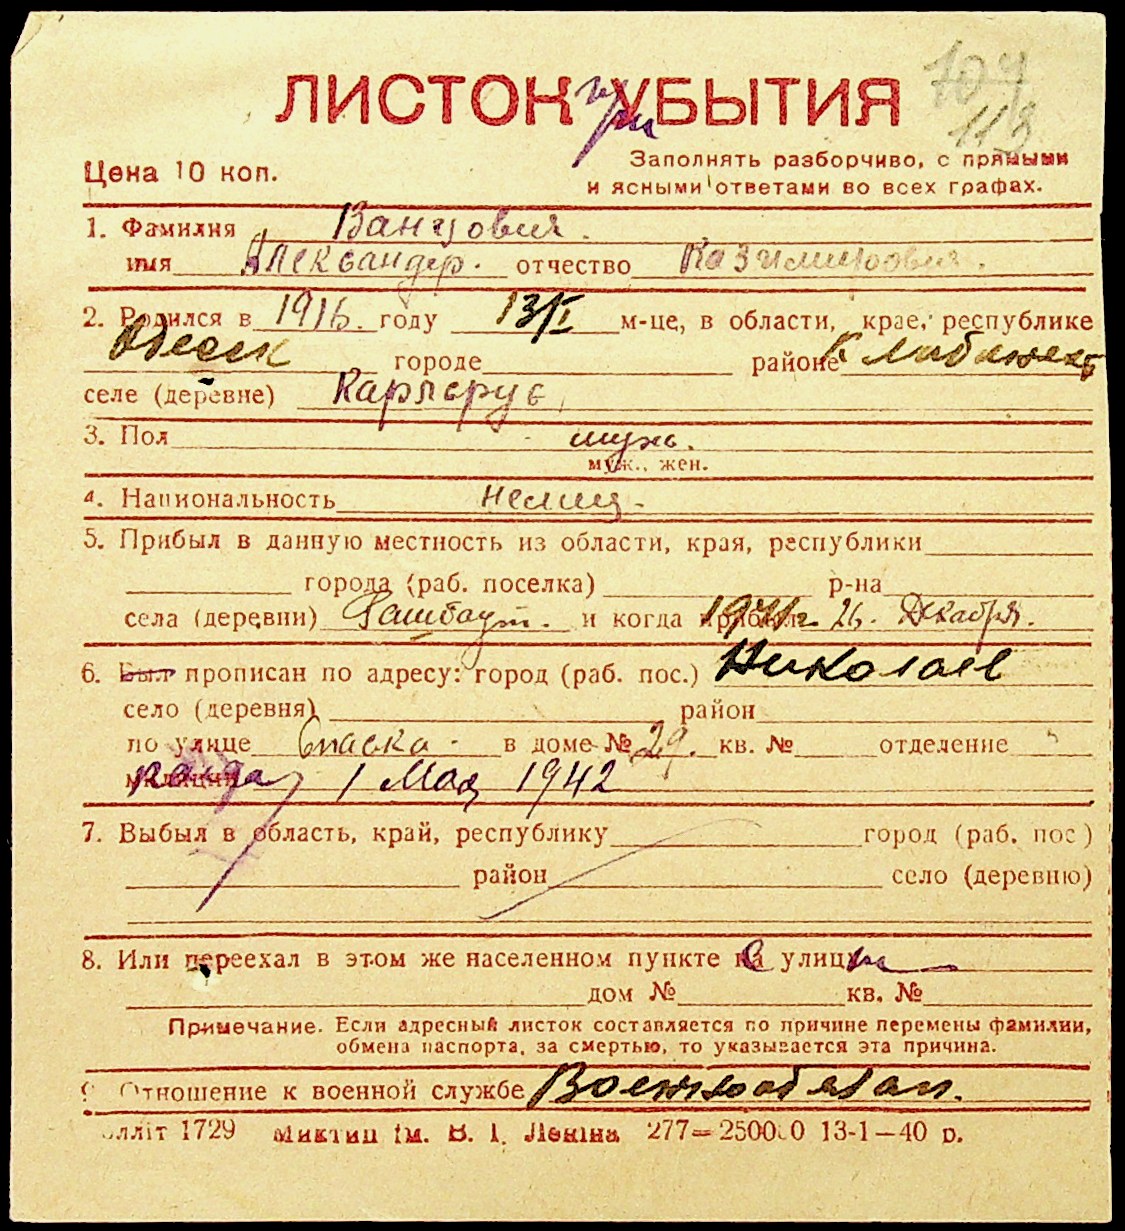 ЛИСТОК УБЫТИЯ
при
107
113
Цена 10 коп.
Заполнять разборчиво, с прямыми
и ясными ответами во всех графах.
1. Фамилия Ванцовия.
имя Александер. отчество Казимировия.
2. Родился в 1916. году 13/I м-це, в области, крае, республике
Одесск городе районе
селе (деревне) Карлсруе
3. Пол мужь.
муж., жен.
4. Национальность немец.
5. Прибыл в данную местность из области, края, республики
города (раб. поселка) р-на
села (деревни) Рашбаут. и когда прибыл 1941 г. 26. Декабря.
6. Был прописан по адресу: город (раб. пос.) Николаев
село (деревня) район
по улице Спаска. в доме № 29. кв. № отделение
милиции когда 1 Мая 1942
7. Выбыл в область, край, республику город (раб. пос)
район село (деревню)
8. Или переехал в этом же населенном пункте с улицы
дом № кв. №
Примечание. Если адресный листок составляется по причине перемены фамилии,
обмена паспорта, за смертью, то указывается эта причина.
9. Отношение к военной службе Военнообязан.
1729 ім. В. І. Леніна 277—250000 13-1—40 р.